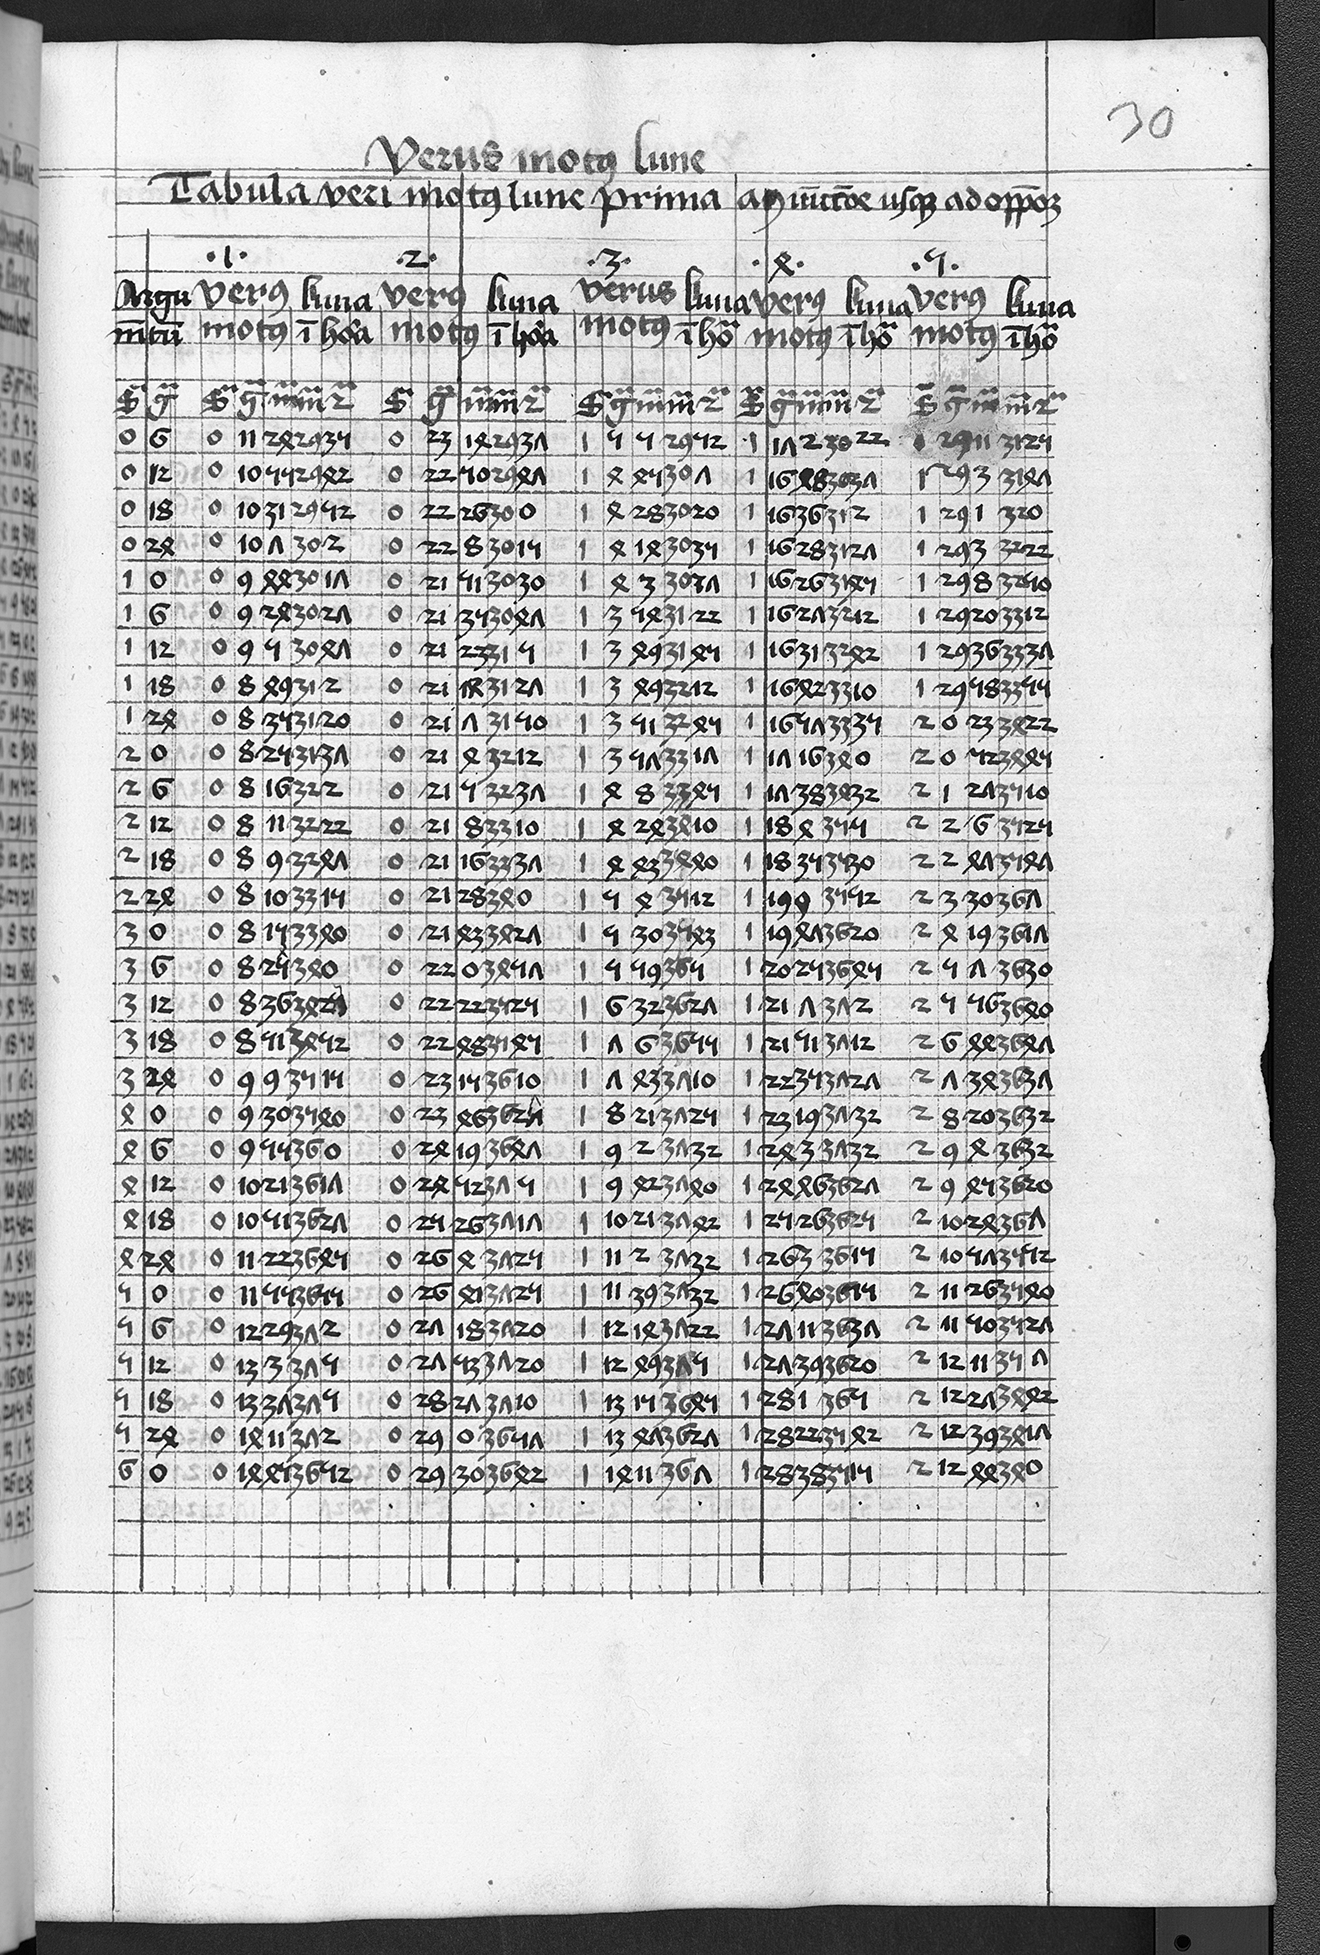 30
Verus motus lune
Tabula veri motus lune prima a coniunctione usque ad oppositionem
.1. .2. .3. .4. .5.
Argu verus luna verus luna verus luna verus luna verus luna
mentum motus in hora motus in hora motus in hora motus in hora motus in hora
S g S g m m 2 S g m m 2 S g m m 2 S g m m 2 S g m m 2
0 6 0 11 24 29 35 0 23 14 29 37 1 5 5 29 52 1 17 2 30 22 1 29 11 31 25
0 12 0 10 55 29 42 0 22 50 29 47 1 4 45 30 7 1 16 48 30 37 1 29 3 31 47
0 18 0 10 31 29 52 0 22 26 30 0 1 4 28 30 20 1 16 36 31 2 1 29 1 32 0
0 24 0 10 7 30 2 0 22 8 30 15 1 4 14 30 35 1 16 28 31 27 1 29 3 32 22
1 0 0 9 44 30 17 0 21 51 30 30 1 4 3 30 37 1 16 26 31 45 1 29 8 32 50
1 6 0 9 24 30 27 0 21 35 30 47 1 3 54 31 22 1 16 27 32 12 1 29 20 33 12
1 12 0 9 5 30 47 0 21 23 31 5 1 3 49 31 45 1 16 31 32 42 1 29 36 33 37
1 18 0 8 49 31 2 0 21 14 31 27 1 3 49 32 12 1 16 42 33 10 1 29 58 33 55
1 24 0 8 35 31 20 0 21 7 31 50 1 3 51 32 45 1 16 57 33 35 2 0 23 34 22
2 0 0 8 25 31 37 0 21 4 32 12 1 3 57 33 17 1 17 16 34 0 2 0 52 34 45
2 6 0 8 16 32 2 0 21 5 32 37 1 4 8 33 45 1 17 38 34 32 2 1 27 35 10
2 12 0 8 11 32 22 0 21 8 33 10 1 4 24 34 10 1 18 4 35 5 2 2 6 35 25
2 18 0 8 9 32 47 0 21 16 33 37 1 4 43 34 40 1 18 35 35 30 2 2 47 35 47
2 24 0 8 10 33 15 0 21 28 34 0 1 5 4 35 12 1 19 9 35 52 2 3 30 36 7
3 0 0 8 15 33 40 0 21 43 34 27 1 5 30 35 43 1 19 47 36 20 2 4 19 36 17
3 6 0 8 25 34 0 0 22 0 34 57 1 5 59 36 5 1 20 25 36 45 2 5 7 36 30
3 12 0 8 36 34 27 0 22 22 35 25 1 6 32 36 27 1 21 7 37 2 2 5 56 36 40
3 18 0 8 51 34 52 0 22 48 35 45 1 7 6 36 55 1 21 51 37 12 2 6 44 36 47
3 24 0 9 9 35 15 0 23 15 36 10 1 7 43 37 10 1 22 35 37 27 2 7 34 36 37
4 0 0 9 30 35 40 0 23 46 36 27 1 8 21 37 25 1 23 19 37 32 2 8 20 36 32
4 6 0 9 55 36 0 0 24 19 36 47 1 9 2 37 32 1 24 3 37 32 2 9 4 36 32
4 12 0 10 21 36 17 0 24 52 37 5 1 9 42 37 40 1 24 46 36 27 2 9 45 36 20
4 18 0 10 51 36 27 0 25 26 37 17 1 10 21 37 42 1 25 26 36 25 2 10 24 36 7
4 24 0 11 22 36 45 0 26 4 37 25 1 11 2 37 32 1 26 3 36 15 2 10 57 35 52
5 0 0 11 55 36 55 0 26 41 37 25 1 11 39 37 32 1 26 40 36 15 2 11 26 35 40
5 6 0 12 29 37 2 0 27 18 37 20 1 12 14 37 22 1 27 11 36 37 2 11 50 35 27
5 12 0 13 3 37 5 0 27 53 37 20 1 12 49 37 5 1 27 39 36 20 2 12 11 35 7
5 18 0 13 37 37 5 0 28 27 37 10 1 13 15 36 45 1 28 1 36 5 2 12 27 34 42
5 24 0 14 11 37 2 0 29 0 36 57 1 13 47 36 27 1 28 22 35 42 2 12 39 34 17
6 0 0 14 45 36 52 0 29 30 36 42 1 14 11 36 7 1 28 38 35 15 2 12 44 34 0